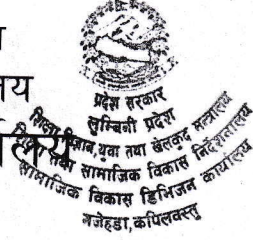 प्रदेश सरकार
लुम्बिनी प्रदेश
युवा तथा खेलकुद मन्त्रालय
तथा सामाजिक विकास निर्देशनालय
सामाजिक विकास डिभिजन कार्यालय
गजेहडा, कपिलवस्तु